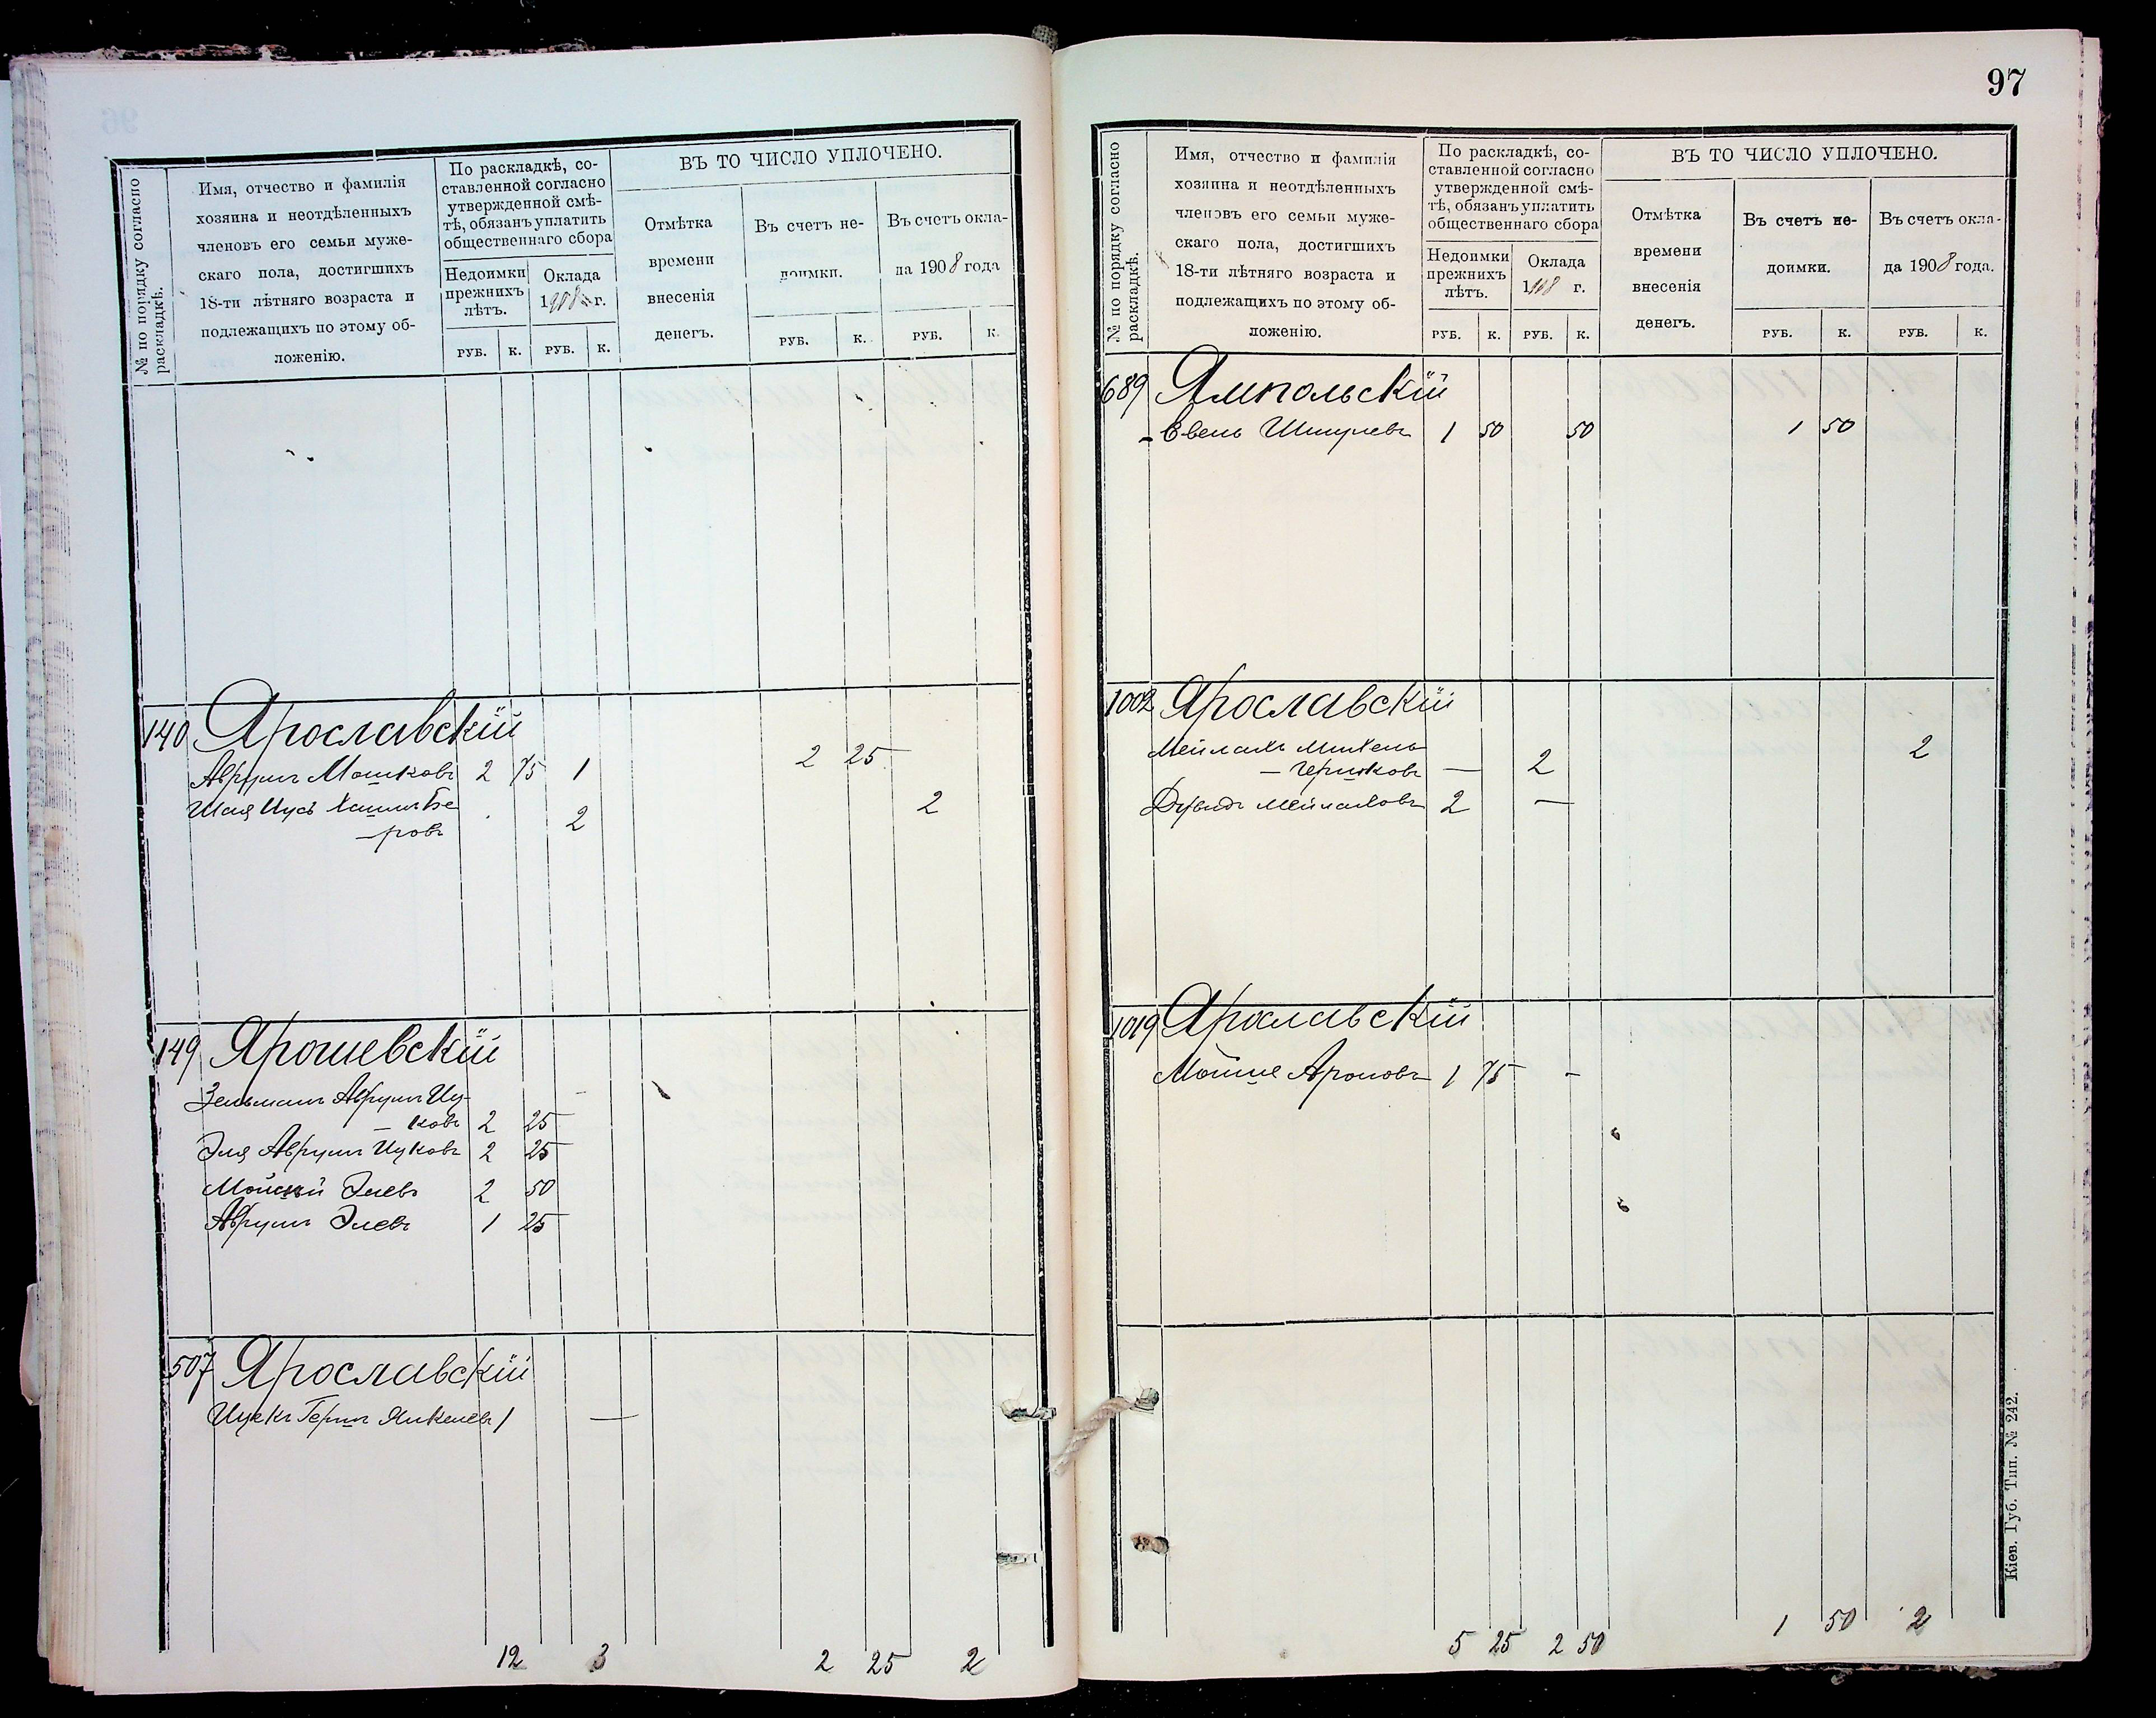 № по порядку согласно раскладкѣ.
Имя, отчество и фамилія
хозяина и неотдѣленныхъ
членовъ его семьи муже-
скаго пола, достигшихъ
18-ти лѣтняго возраста и
подлежащихъ по этому об-
ложенію.
По раскладкѣ, со-
ставленной согласно
утвержденной смѣ-
тѣ, обязанъ уплатить
общественнаго сбора
Недоимки
прежнихъ
лѣтъ.
Оклада
1908 г.
РУБ. К. РУБ. К.
ВЪ ТО ЧИСЛО УПЛОЧЕНО.
Отмѣтка
времени
внесенія
денегъ.
Въ счетъ не-
доимки.
Въ счетъ окла-
да 1908 года
РУБ. К. РУБ. К.
140 Ярославскій
Аврумъ Мошковъ 2 75 1 2 25
Шая Ицсъ Хаимъ Бе-
–ровъ 2 2
149 Ярошевскій
Зельманъ Аврумъ Иц-
– ковъ 2 25 –
Эля Аврумъ Ицковъ 2 25
Мойсей Элевъ 2 50
Аврумъ Элевъ 1 25
507 Ярославскій
Ицекъ Гершъ Янкелевъ 1 —
12 3 2 25 2
97
№ по порядку согласно раскладкѣ.
Имя, отчество и фамилія
хозяина и неотдѣленныхъ
членовъ его семьи муже-
скаго пола, достигшихъ
18-ти лѣтняго возраста и
подлежащихъ по этому об-
ложенію.
По раскладкѣ, со-
ставленной согласно
утвержденной смѣ-
тѣ, обязанъ уплатить
общественнаго сбора
Недоимки
прежнихъ
лѣтъ.
Оклада
1908 г.
РУБ. К. РУБ. К.
ВЪ ТО ЧИСЛО УПЛОЧЕНО.
Отмѣтка
времени
внесенія
денегъ.
Въ счетъ не-
доимки.
Въ счетъ окла-
да 1908 года.
РУБ. К. РУБ. К.
689 Ямпольскій
Шмулевъ 1 50 50 1 50
1002 Ярославскій
Мейлахъ Михель
– Гершковъ — 2 2
Мейлаховъ 2 —
1019 Ярославскій
Мойше Ароновъ 1 75 –
5 25 2 50 1 50 2
Кіев. Губ. Тип. № 242.